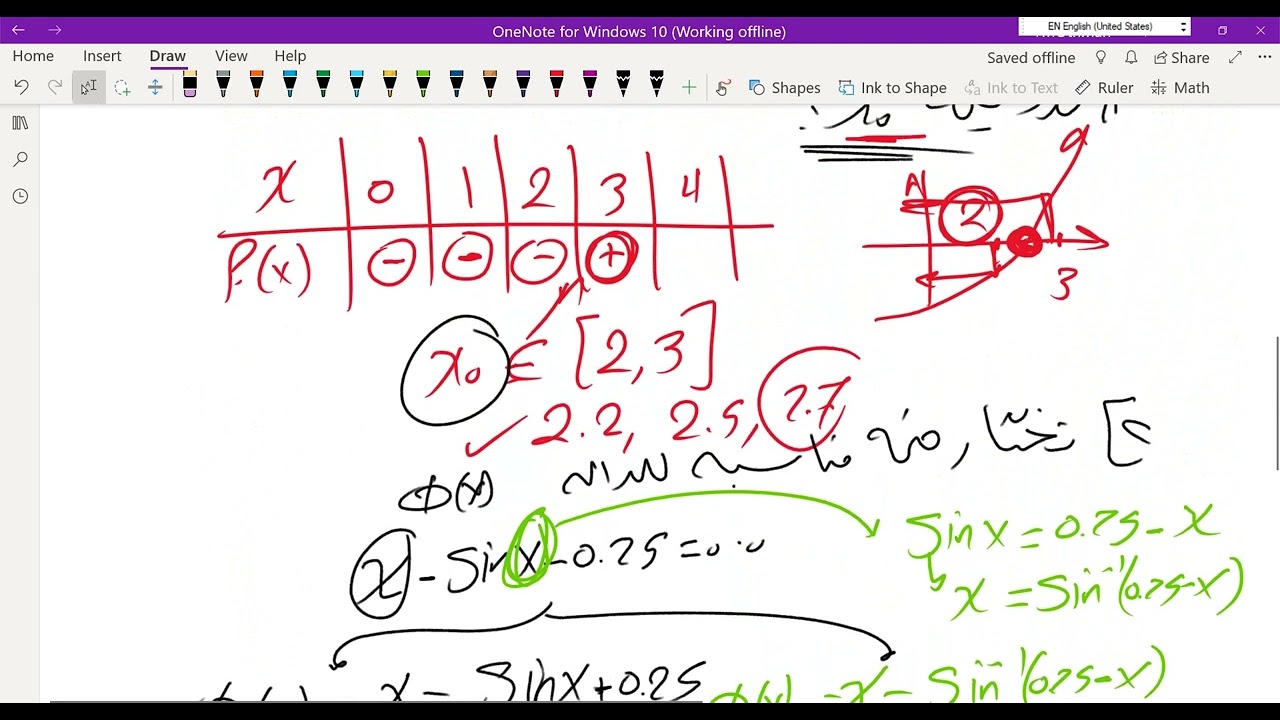 OneNote for Windows 10 (Working offline)
EN English (United States)
Home Insert Draw View Help
Saved offline Share
Shapes Ink to Shape Ink to Text Ruler Math
x 0 1 2 3 4
(x) - - - +
2
3
x₀ ∈ [2,3]
✓ 2.2, 2.5, 2.7
φ(x)
x - Sin x - 0.25 = 0.0
Sin x = 0.25 - x
x = Sin⁻¹(0.25-x)
x = Sin x + 0.25
x = Sin⁻¹(0.25-x)